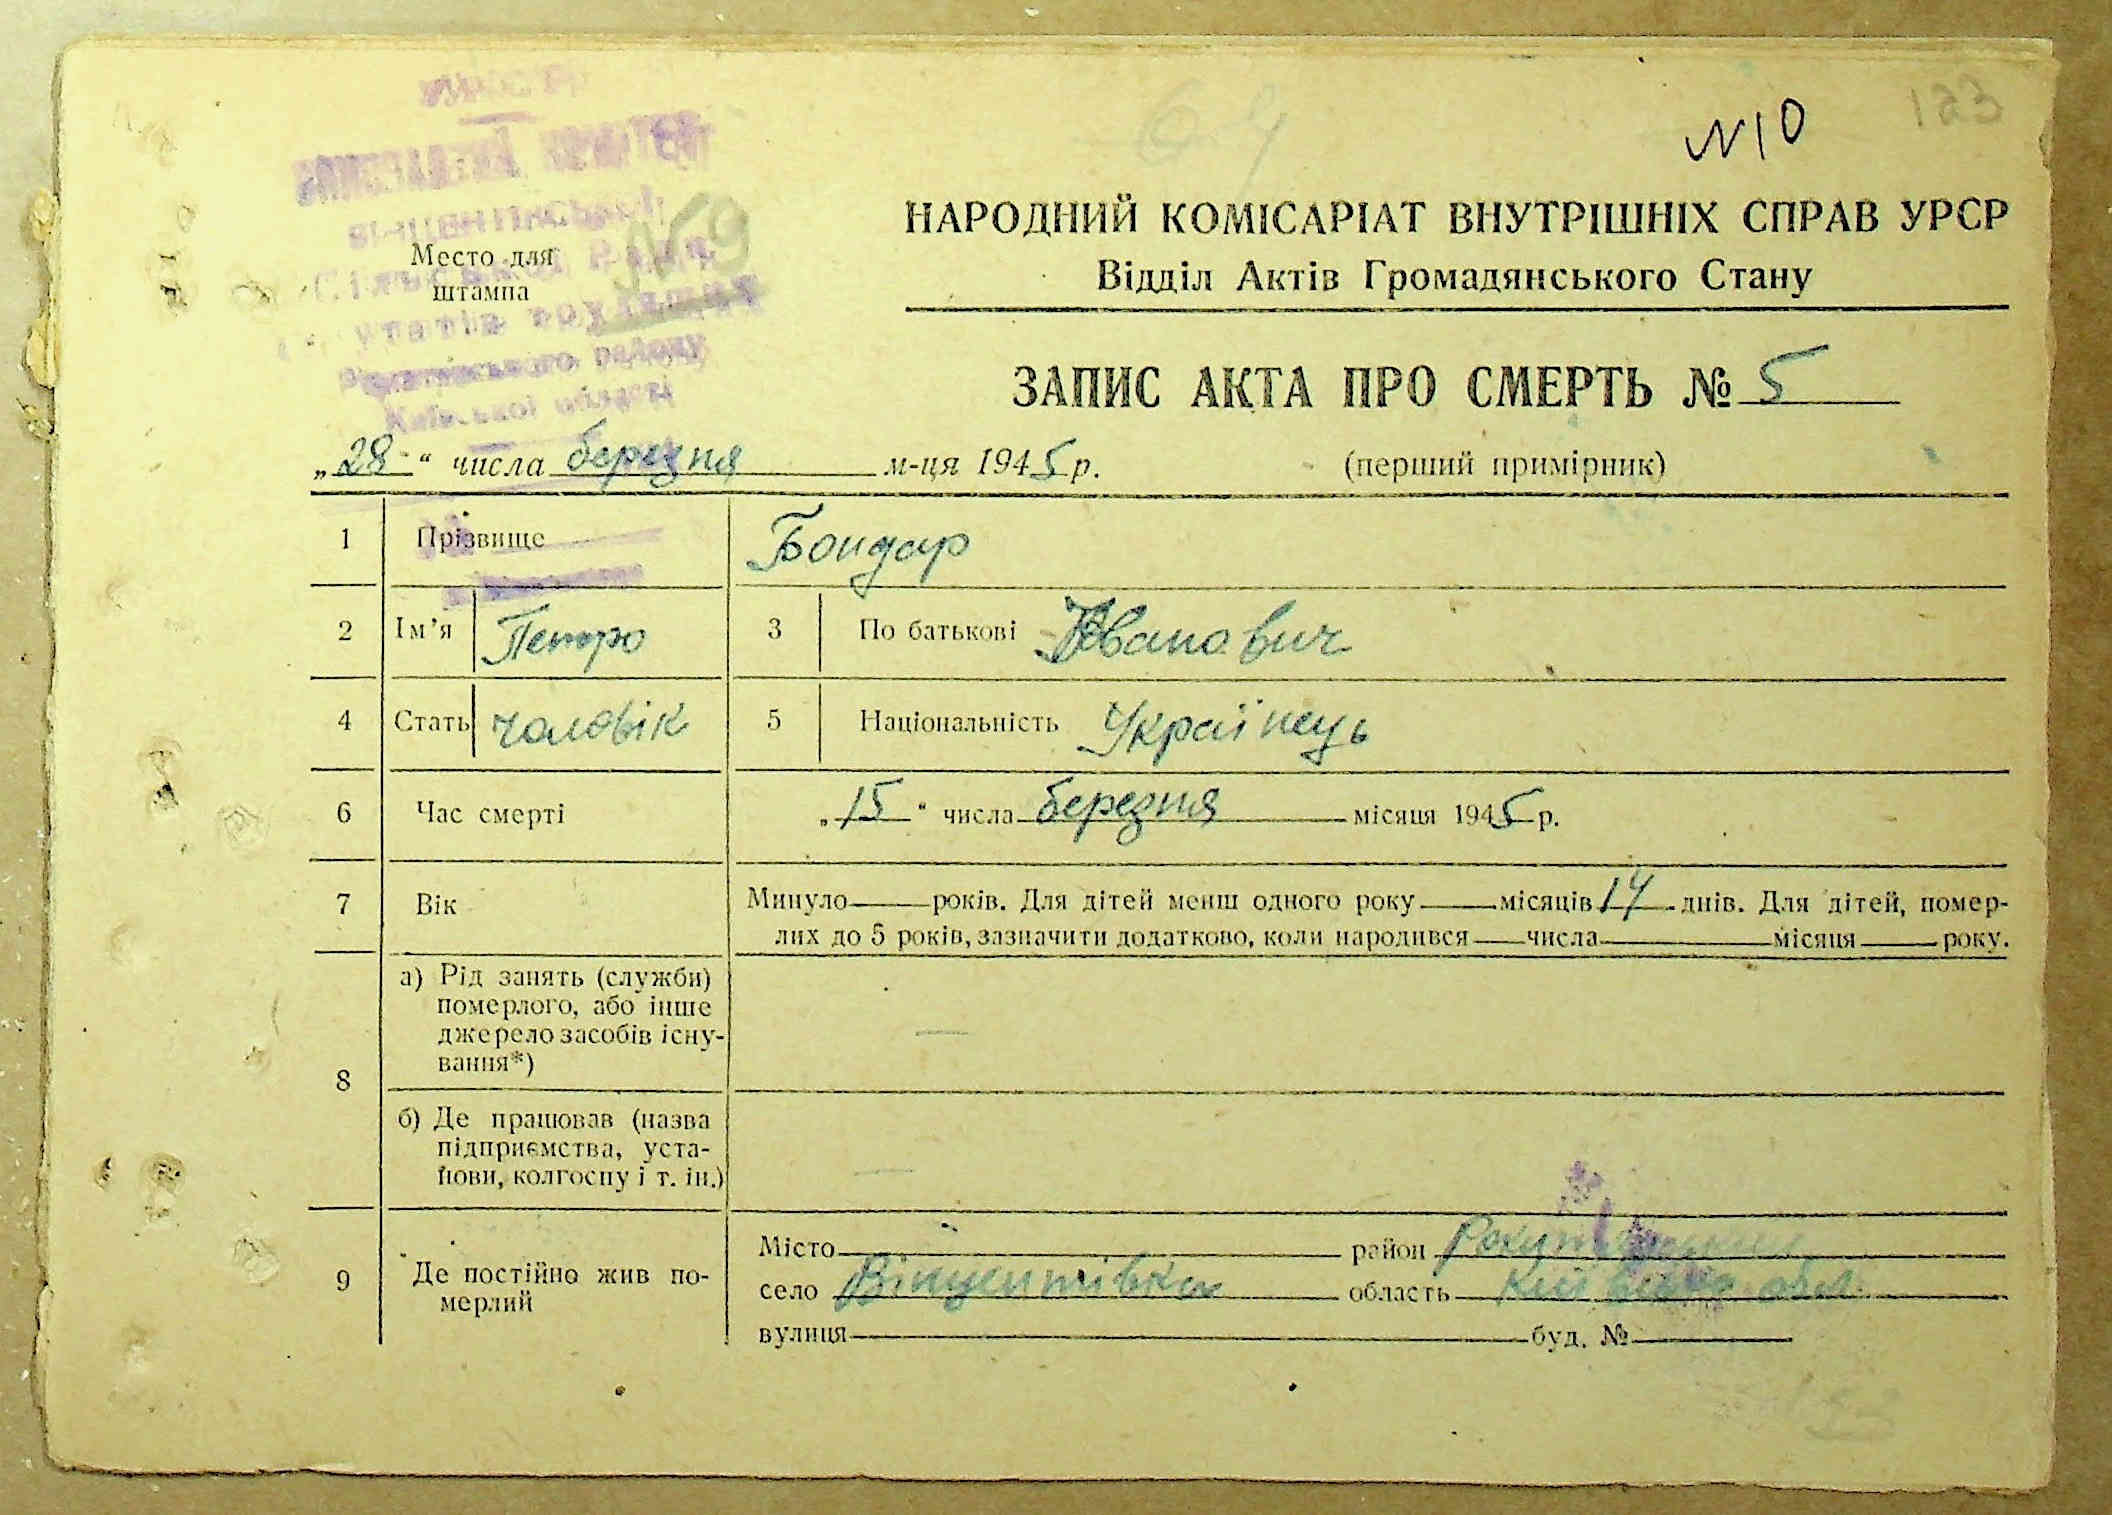 №10
123
УРСР
ВИКОНАВЧИЙ КОМІТЕТ
Вінцентівської
Сільської Ради
депутатів трудящих
Рокитнянського району
Київської області
№9
Место для
штампа
НАРОДНИЙ КОМІСАРІАТ ВНУТРІШНІХ СПРАВ УРСР
Відділ Актів Громадянського Стану
ЗАПИС АКТА ПРО СМЕРТЬ № 5
„28“ числа березня м-ця 1945 р. (перший примірник)
1 Прізвище Бондар
2 Ім’я Петро 3 По батькові Іванович
4 Стать чоловік 5 Національність Українець
6 Час смерті „15“ числа березня місяця 1945 р.
7 Вік Минуло — років. Для дітей менш одного року — місяців 14 днів. Для дітей, помер-
лих до 5 років, зазначити додатково, коли народився — числа — місяця — року.
8 а) Рід занять (служби)
померлого, або інше
джерело засобів існу-
вання*)
—
б) Де працював (назва
підприємства, уста-
нови, колгоспу і т. ін.)
—
9 Де постійно жив по-
мерлий
Місто район Рокитнянський
село Вінцентівка область Київська обл.
вулиця буд. №